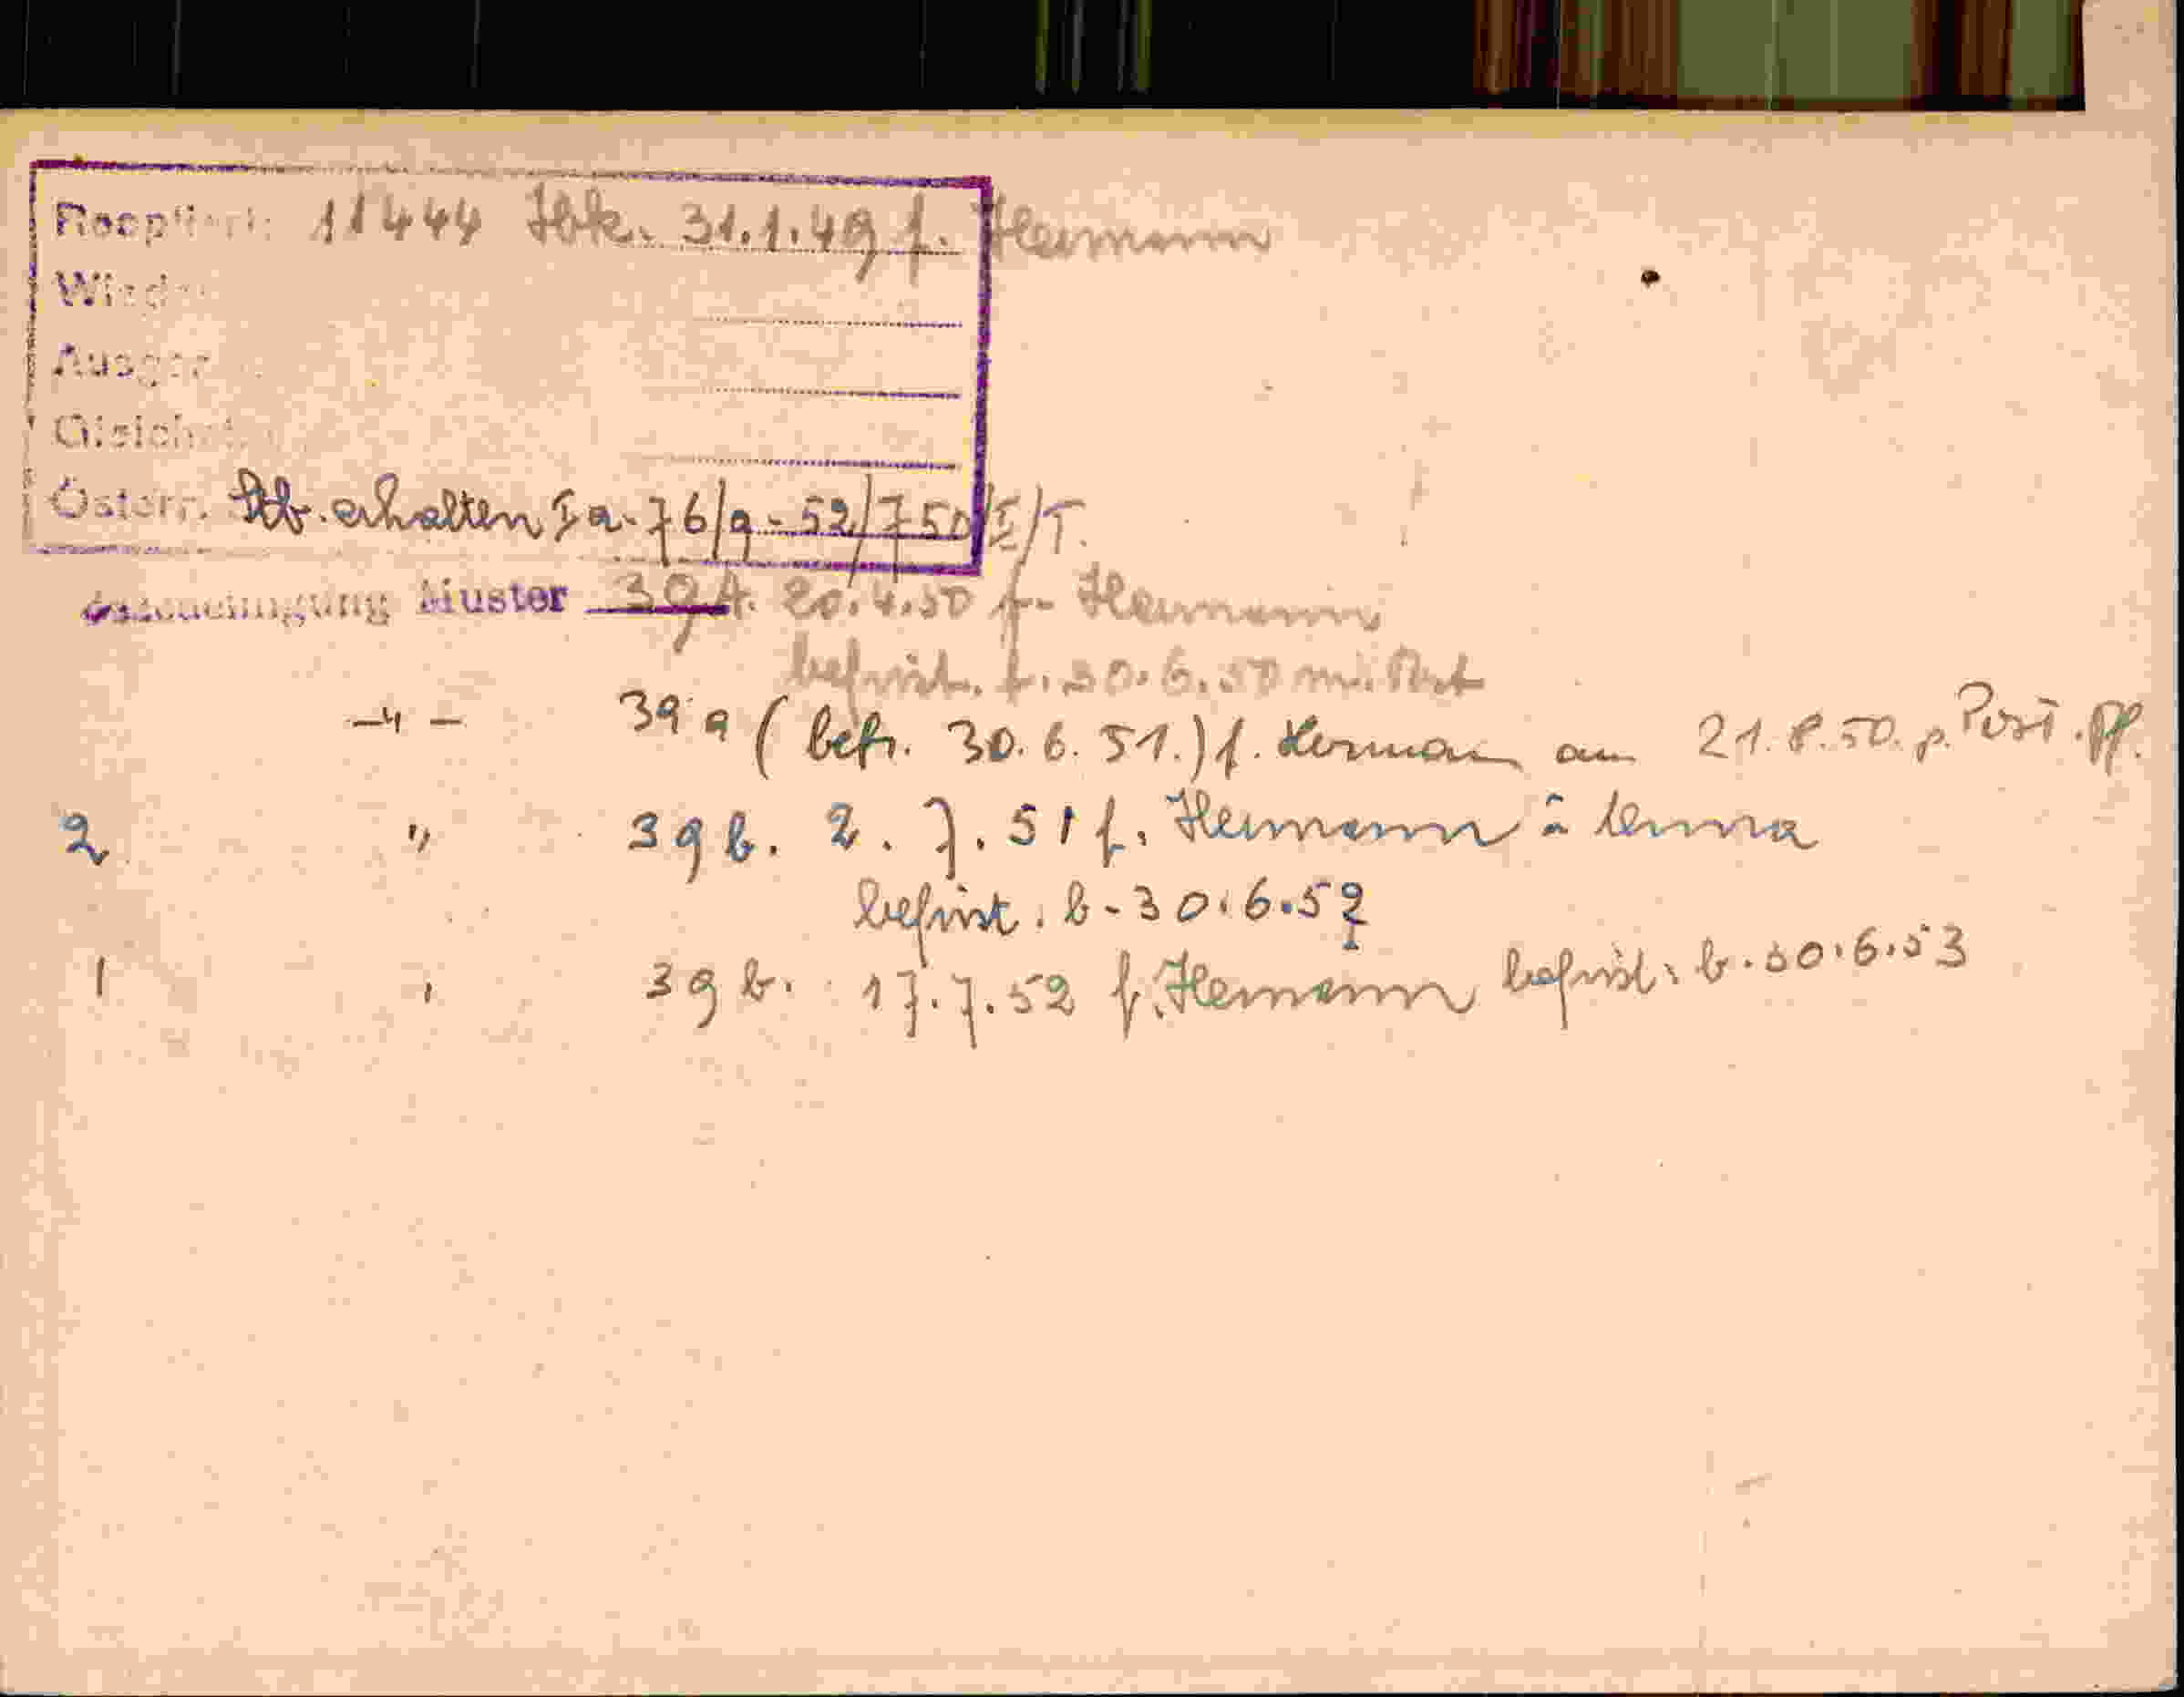 Reoptiert: 11444 Ibk. 31.1.49 f. Hermann
Wieder
Ausger
Gleichst.
Österr. Stb. erhalten Ia-76/9-52/750/II/T.
Muster 39A. 20.4.50 f. Hermann
befrist. b. 30.6.50 m. Post
-"- 39a (befr. 30.6.51.) f. Herman am 21.8.50. p. Post. Pf.
2 " 39b. 2.7.51 f. Hermann u Anna
befrist. b. 30.6.52
1 " 39b. 17.7.52 f. Hermann befrist. b. 30.6.53